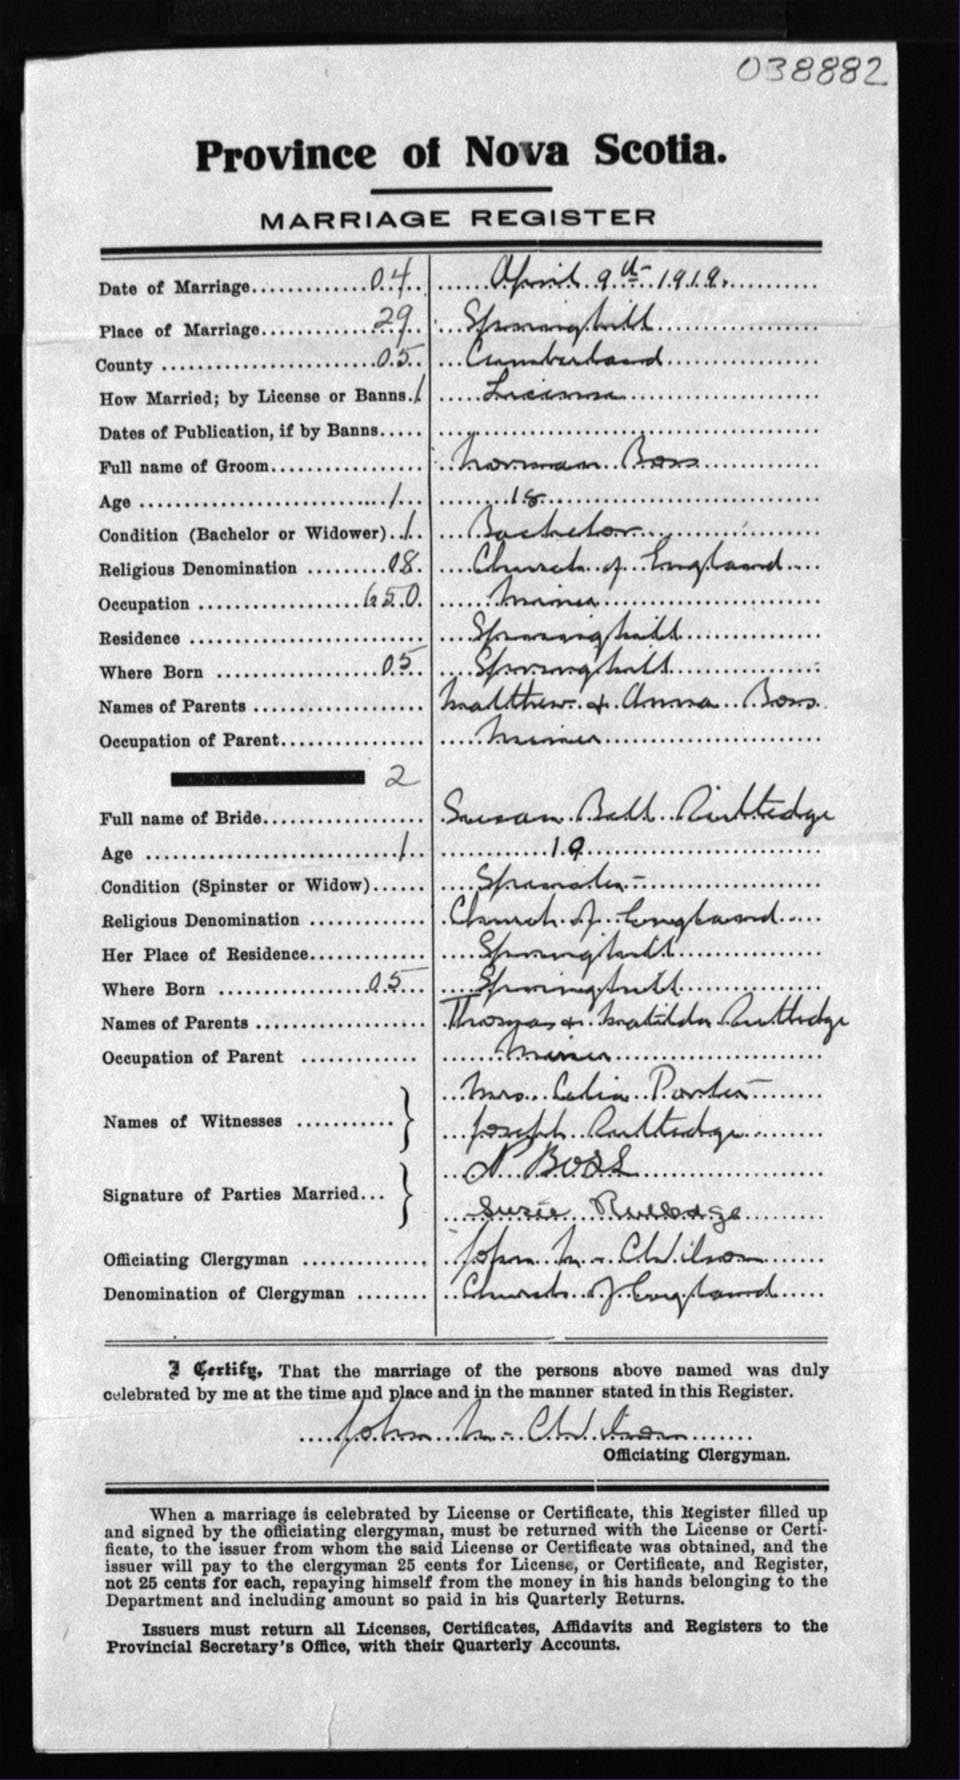 038882
Province of Nova Scotia.
MARRIAGE REGISTER
Date of Marriage 04 April 9th 1919.
Place of Marriage 29 Springhill
County 05 Cumberland
How Married; by License or Banns. 1 License
Dates of Publication, if by Banns
Full name of Groom Norman Boss
Age 1 18
Condition (Bachelor or Widower) 1 Bachelor
Religious Denomination 08 Church of England
Occupation 650 Miner
Residence Springhill
Where Born 05 Springhill
Names of Parents Matthew & Anna Boss
Occupation of Parent Miner
2
Full name of Bride Susan Bell Rutledge
Age 1 19
Condition (Spinster or Widow) Spinster
Religious Denomination Church of England
Her Place of Residence Springhill
Where Born 05 Springhill
Names of Parents Thomas & Matilda Rutledge
Occupation of Parent Miner
Mrs. Celia Porter
Names of Witnesses
Joseph Rutledge
N Boss
Signature of Parties Married
Susie Rutledge
Officiating Clergyman John M. Wilson
Denomination of Clergyman Church of England
I Certify, That the marriage of the persons above named was duly
celebrated by me at the time and place and in the manner stated in this Register.
John M. Wilson
Officiating Clergyman.
When a marriage is celebrated by License or Certificate, this Register filled up
and signed by the officiating clergyman, must be returned with the License or Certi-
ficate, to the issuer from whom the said License or Certificate was obtained, and the
issuer will pay to the clergyman 25 cents for License, or Certificate, and Register,
not 25 cents for each, repaying himself from the money in his hands belonging to the
Department and including amount so paid in his Quarterly Returns.
Issuers must return all Licenses, Certificates, Affidavits and Registers to the
Provincial Secretary's Office, with their Quarterly Accounts.